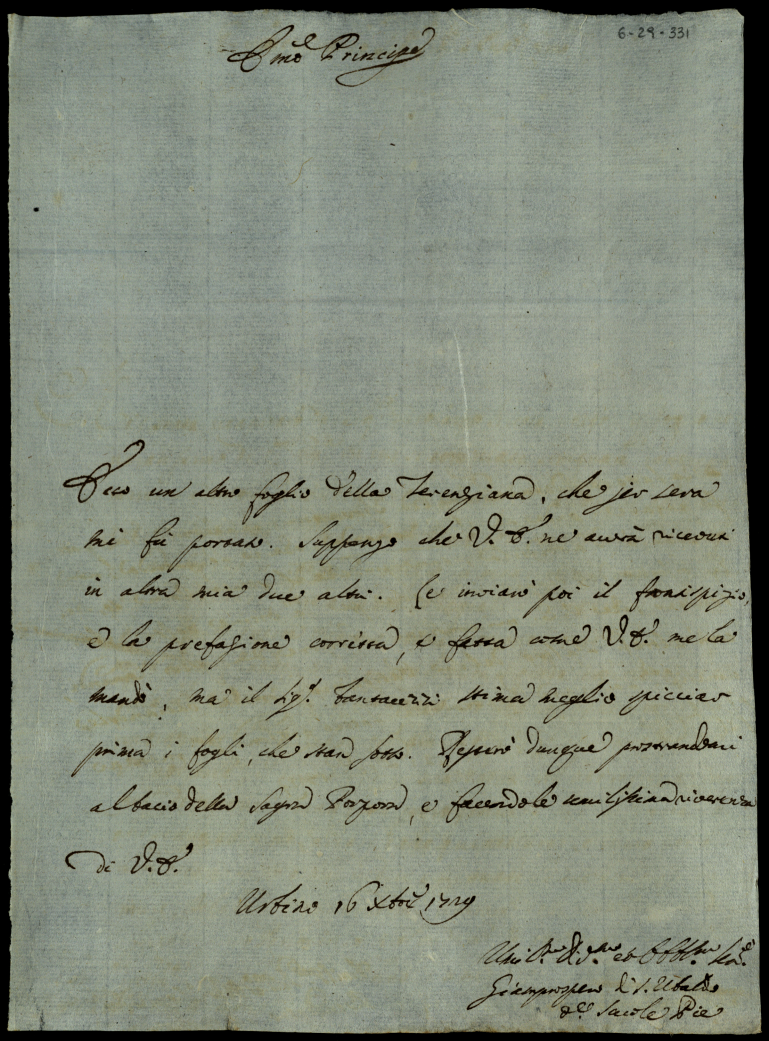 6-29-331
Emo Principe
Ecco un altro foglio della Terenziana, che jer sera
mi fù portato. Suppongo che V. E. ne avrà ricevuti
in altra mia due altri. Le inviarò poi il frontispizio,
e la prefazione corretta, e fatta come V. E. me la
mandò, ma il Sigr. stima meglio spicciar
prima i fogli, che stan sotto. Resterò dunque prostrandomi
al bacio della Sagra Porpora, e facendole umilissima riverenza
di V. E.
Urbino 16 Xbre 1729
Umilmo Divmo et Obblmo
Giamprospero di S. Ubaldo
delle Scuole Pie